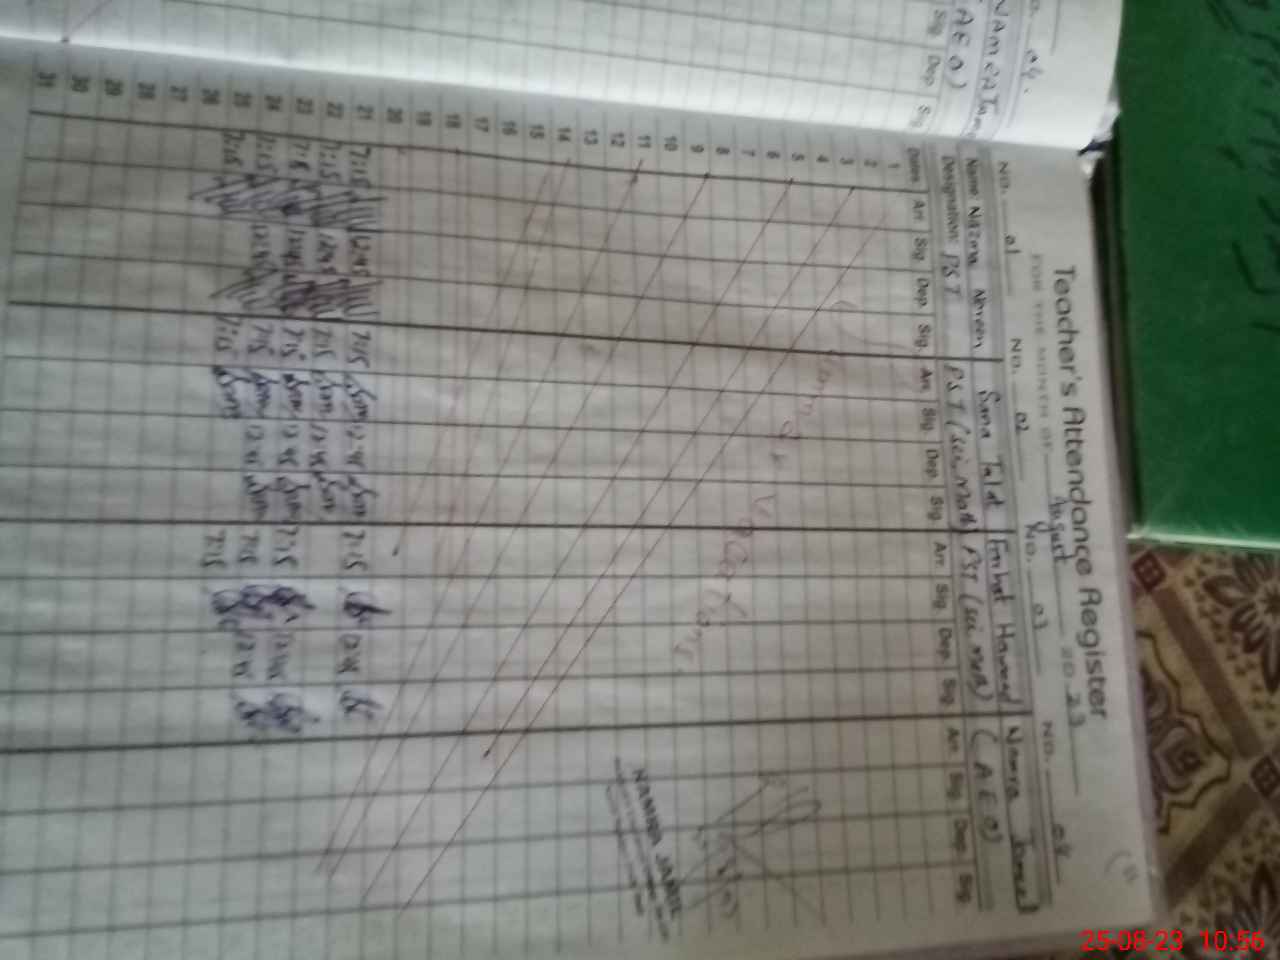 Teacher's Attendance Register
FOR THE MONTH OF August 2023
NO. 01 NO. 02 NO. 03 NO. 04
Name Nazma Noreen Sana Talat Emhat Hameed Namra Jameel
Designation: PST PST (Sci. Math) PST (Sci. Math) (AEO)
Dates Arr. Sig. Dep. Sig. Arr. Sig. Dep. Sig. Arr. Sig. Dep. Sig. Arr. Sig. Dep. Sig.
1
2
3
4
5
6
7
8
9
10
11
12
13
14
15
16
17
18
19
20
21 7:15 12:45 7:15 12:45 7:15 12:45
22 7:15 12:45 7:15 12:45
23 7:15 12:45 7:15 12:45 7:15 12:45
24 7:15 12:45 7:15 12:45 7:15 12:45
25 7:15 7:15 7:15
26
27
28
29
30
31
Summer Vacations
NO. 04.
(AEO)
Sig. Dep. Sig.
25-08-23 10:56